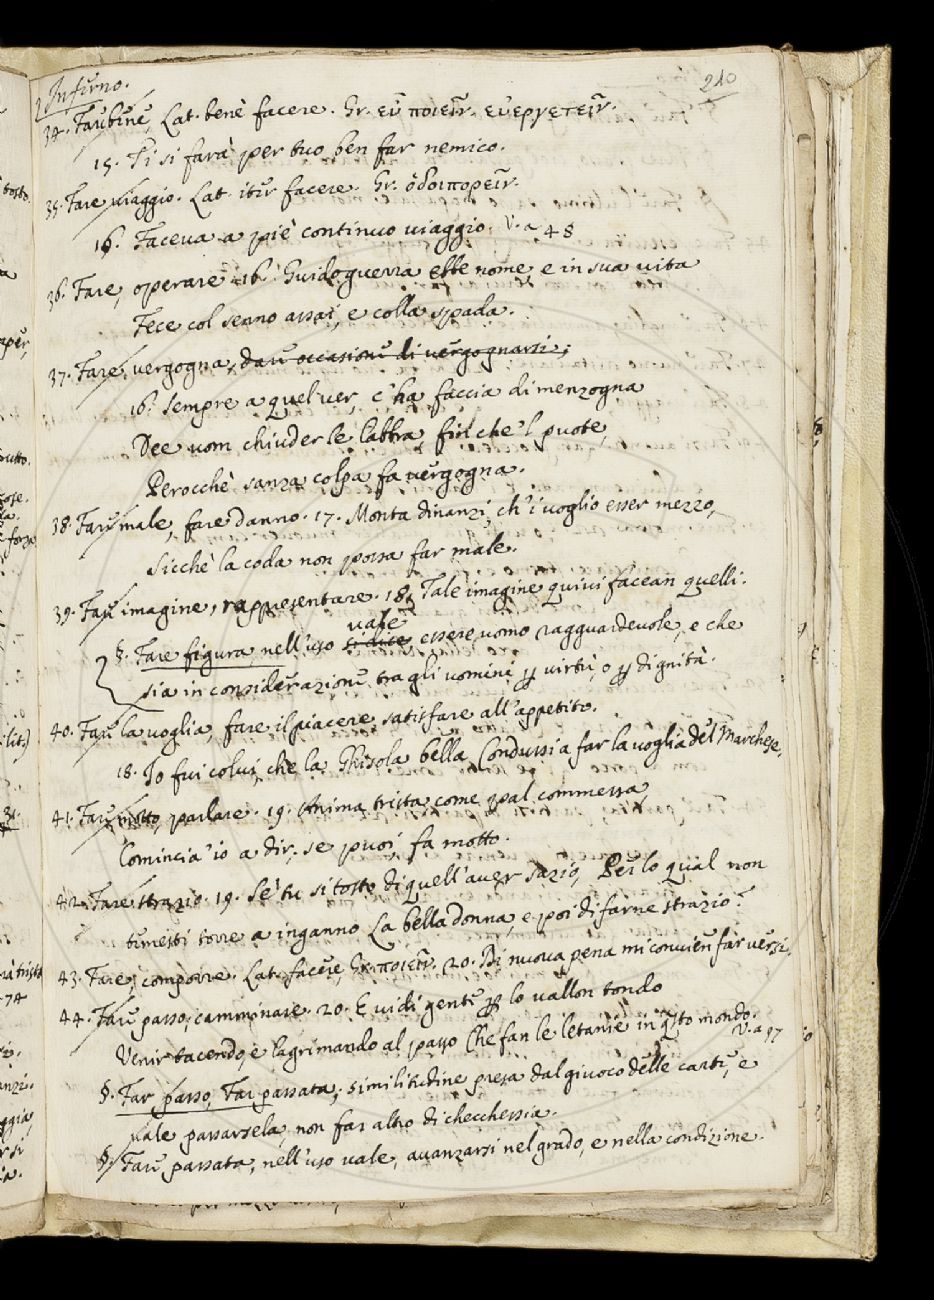 Inferno.
240
34. Far bene, Lat. benè facere. Gr. εὖ ποιεῖν. εὐεργετεῖν.
15. Ti si farà per tuo ben far nemico.
35. Fare viaggio. Lat. iter facere. Gr. ὁδοιπορεῖν.
16. Faceva a piè continuo viaggio. V. a 48
36. Fare, operare 16. Guidoguerra ebbe nome, e in sua vita
Fece col senno assai, e colla spada.
37. Fare vergogna, dare occasione di vergognarsi;
16. Sempre a quel ver, c'ha faccia di menzogna
Dee uom chiuder le labbra, fin che 'l puote,
Perocchè sanza colpa fa vergogna.
38. Fare male, fare danno. 17. Monta dinanzi, ch'i' voglio esser mezzo,
Sicchè la coda non possa far male.
39. Fare imagine, rappresentare. 18. Tale imagine quivi facean quelli.
vale
§. Fare figura, nell'uso si dice, essere uomo ragguardevole, e che
sia in considerazione tra gli uomini ꝑ virtù, o ꝑ dignità.
40. Fare la voglia, fare il piacere, satisfare all'appetito.
18. Io fui colui, che la Ghisola bella Condussi a far la voglia del Marchese.
41. Fare motto, parlare. 19. Anima trista come pal commessa
Comincia' io a dir, se puoi fa motto.
42. Fare strazio. 19. Se' tu sì tosto di quell'aver sazio, Per lo qual non
temesti torre a inganno La bella donna, e poi di farne strazio?
43. Fare, comporre. Lat. facere, Gr. ποιεῖν. 20. Di nuova pena mi convien far versi.
44. Fare passo, camminare. 20. E vidi gente ꝑ lo vallon tondo
Venir tacendo, e lagrimando al passo Che fan le letanìe in q̃sto mondo.
V. a 97
§. Far passo, Far passata; similitudine presa dal giuoco delle carte, e
vale passarsela, non far altro di checchessia.
§. Fare passata, nell'uso vale, avanzarsi nel grado, e nella condizione.